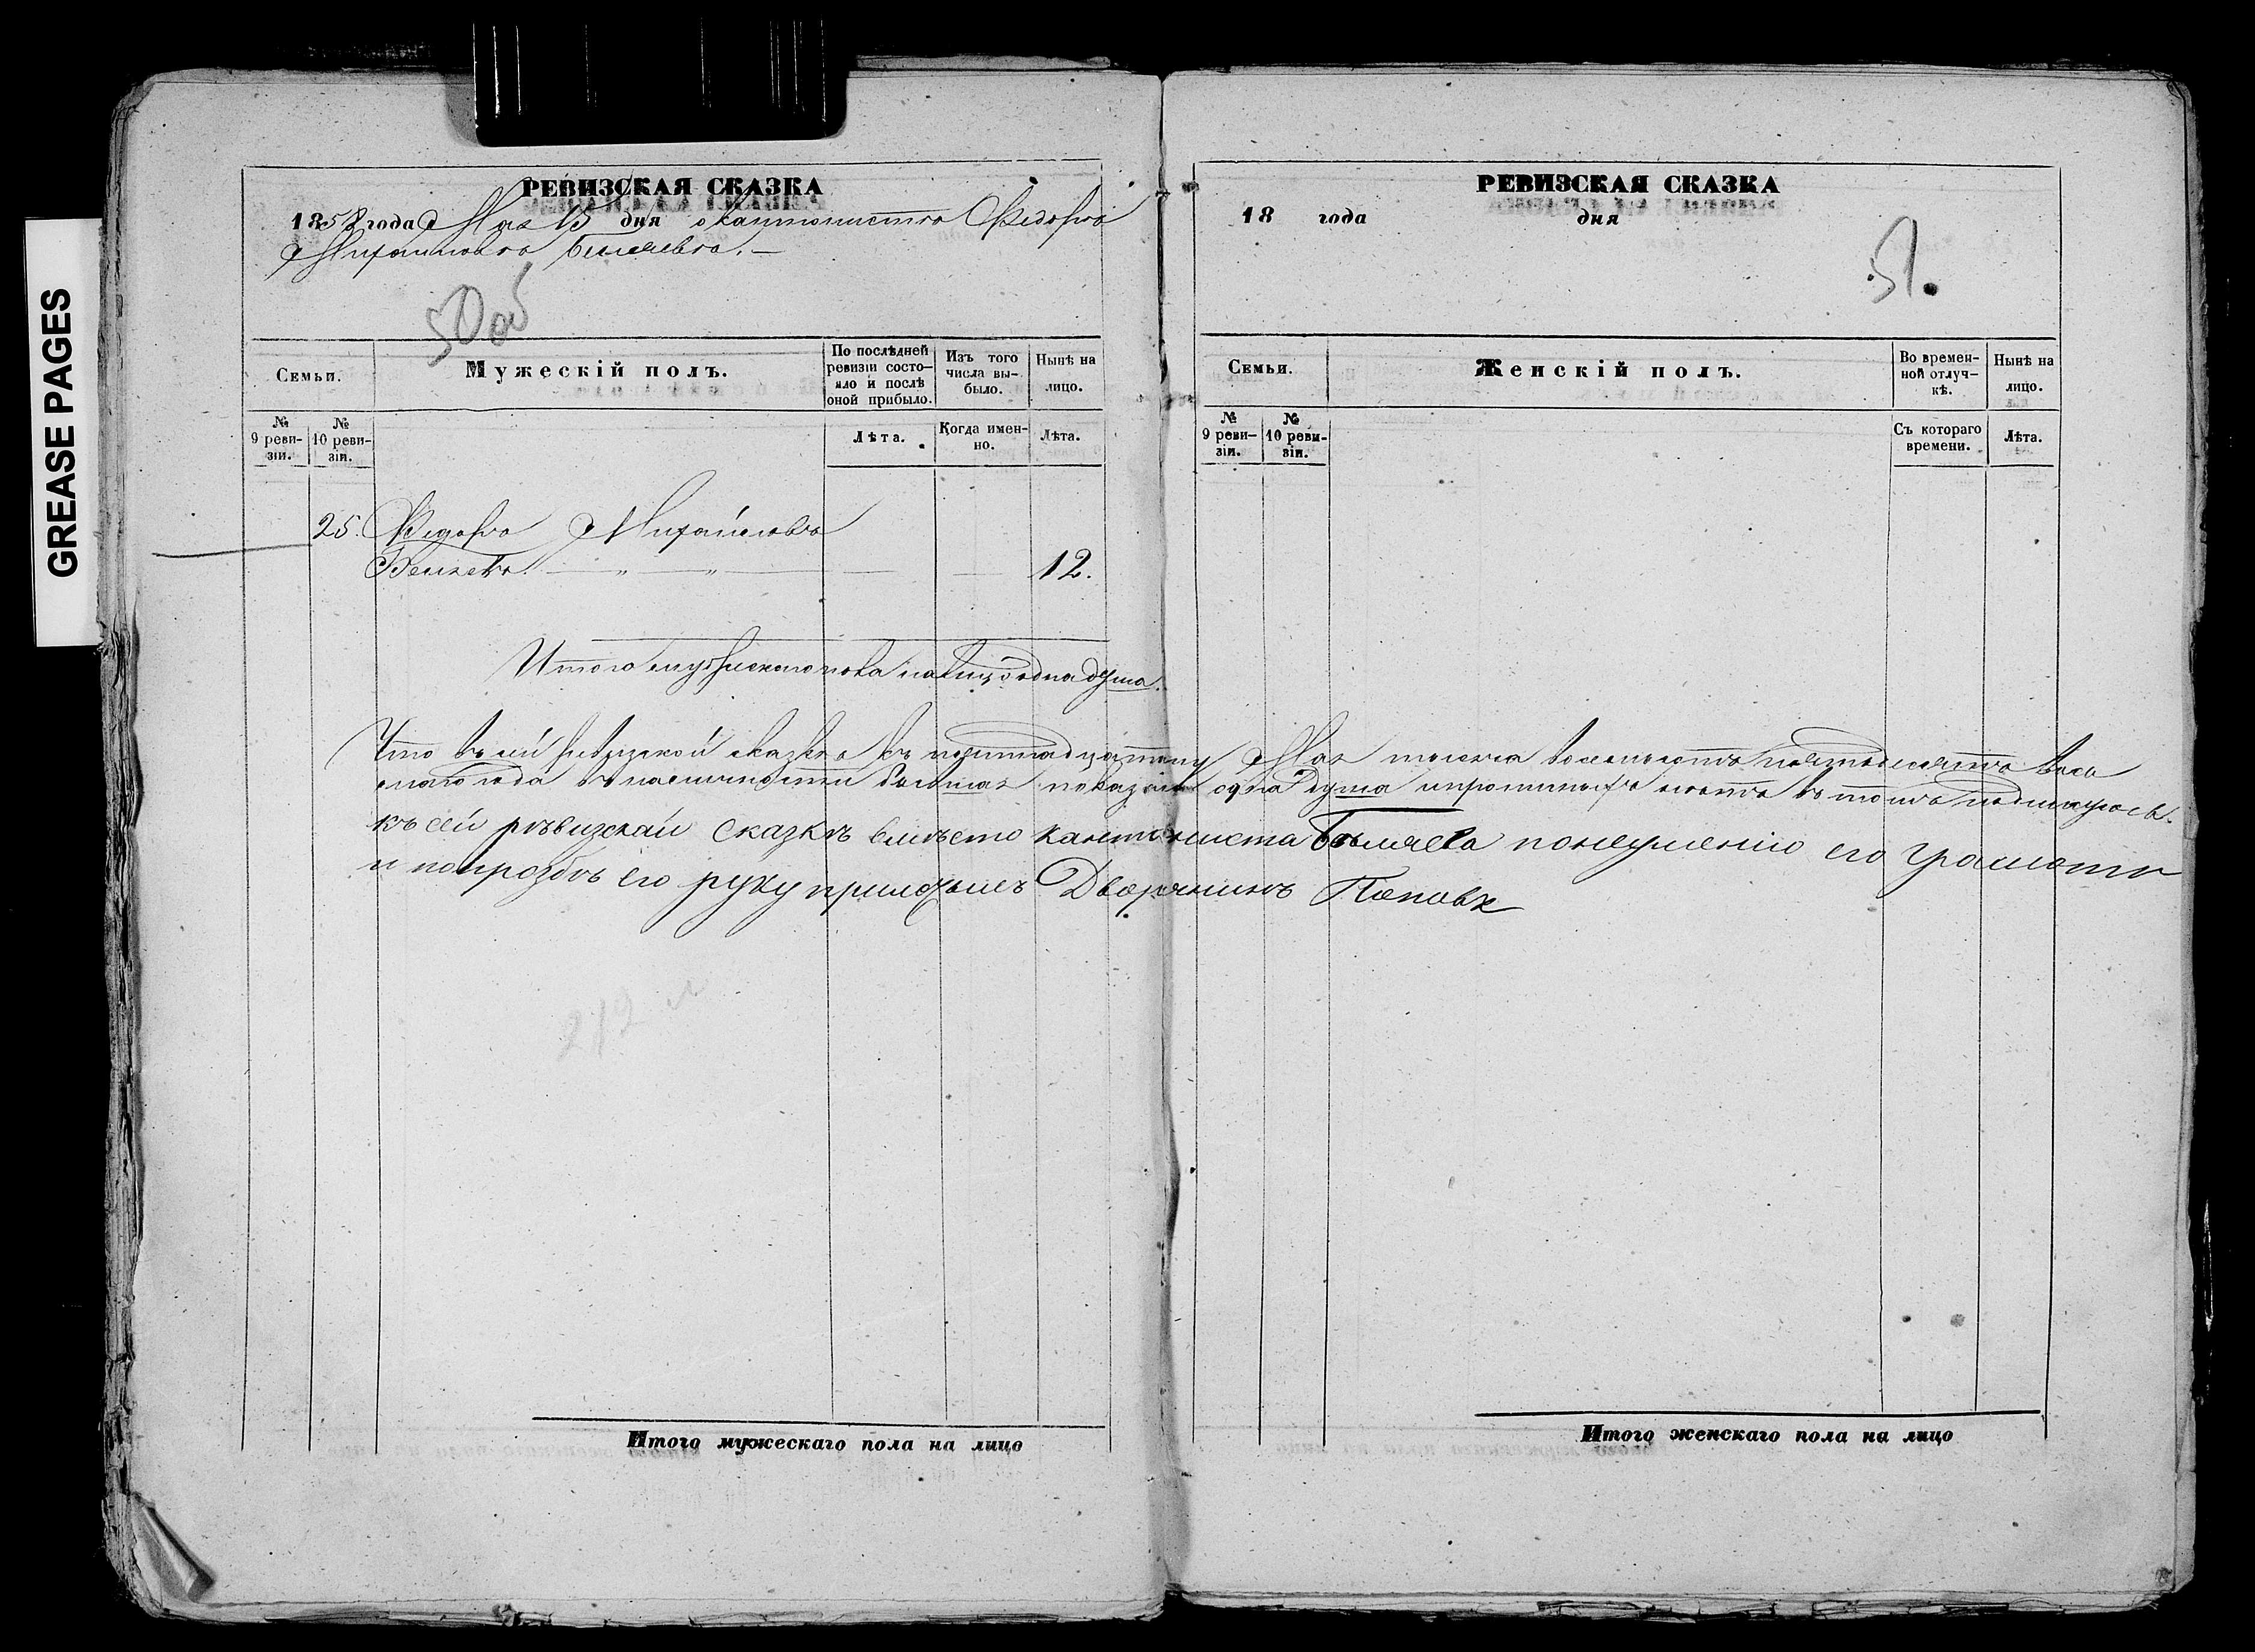 GREASE PAGES
РЕВИЗСКАЯ СКАЗКА
1858 года Мая 15 дня о кантонисте Федоръ
Михаиловъ Беляевъ. —
50об
Семьи.
Мужескій полъ.
По послѣдней ревизіи состояло и послѣ оной прибыло.
Изъ того числа выбыло.
Нынѣ на лицо.
№ 9 ревизіи.
№ 10 ревизіи.
Лѣта.
Когда именно.
Лѣта.
25. Федоръ Михайловъ
Беляевъ. — " — " — 12.
Итого мужескаго пола на лицо одна душа.
РЕВИЗСКАЯ СКАЗКА
18 года дня
51.
Семьи.
Женскій полъ.
Во временной отлучкѣ.
Нынѣ на лицо.
№ 9 ревизіи.
№ 10 ревизіи.
Съ котораго времени.
Лѣта.
Что въ сей ревизской сказке къ пятнадцатому Мая тысяча восемьсотъ пятьдесятъ вось
маго года въ наличности бывшая показана одна душа и прописныхъ нетъ въ томъ подписуюсь.
къ сей ръвизскай сказкъ вмъсто кантониста Бъляева понеумению его грамоти
и попрозбъ его руку приложылъ Дворянинъ Поповъ
212 м
Итого мужескаго пола на лицо
Итого женскаго пола на лицо